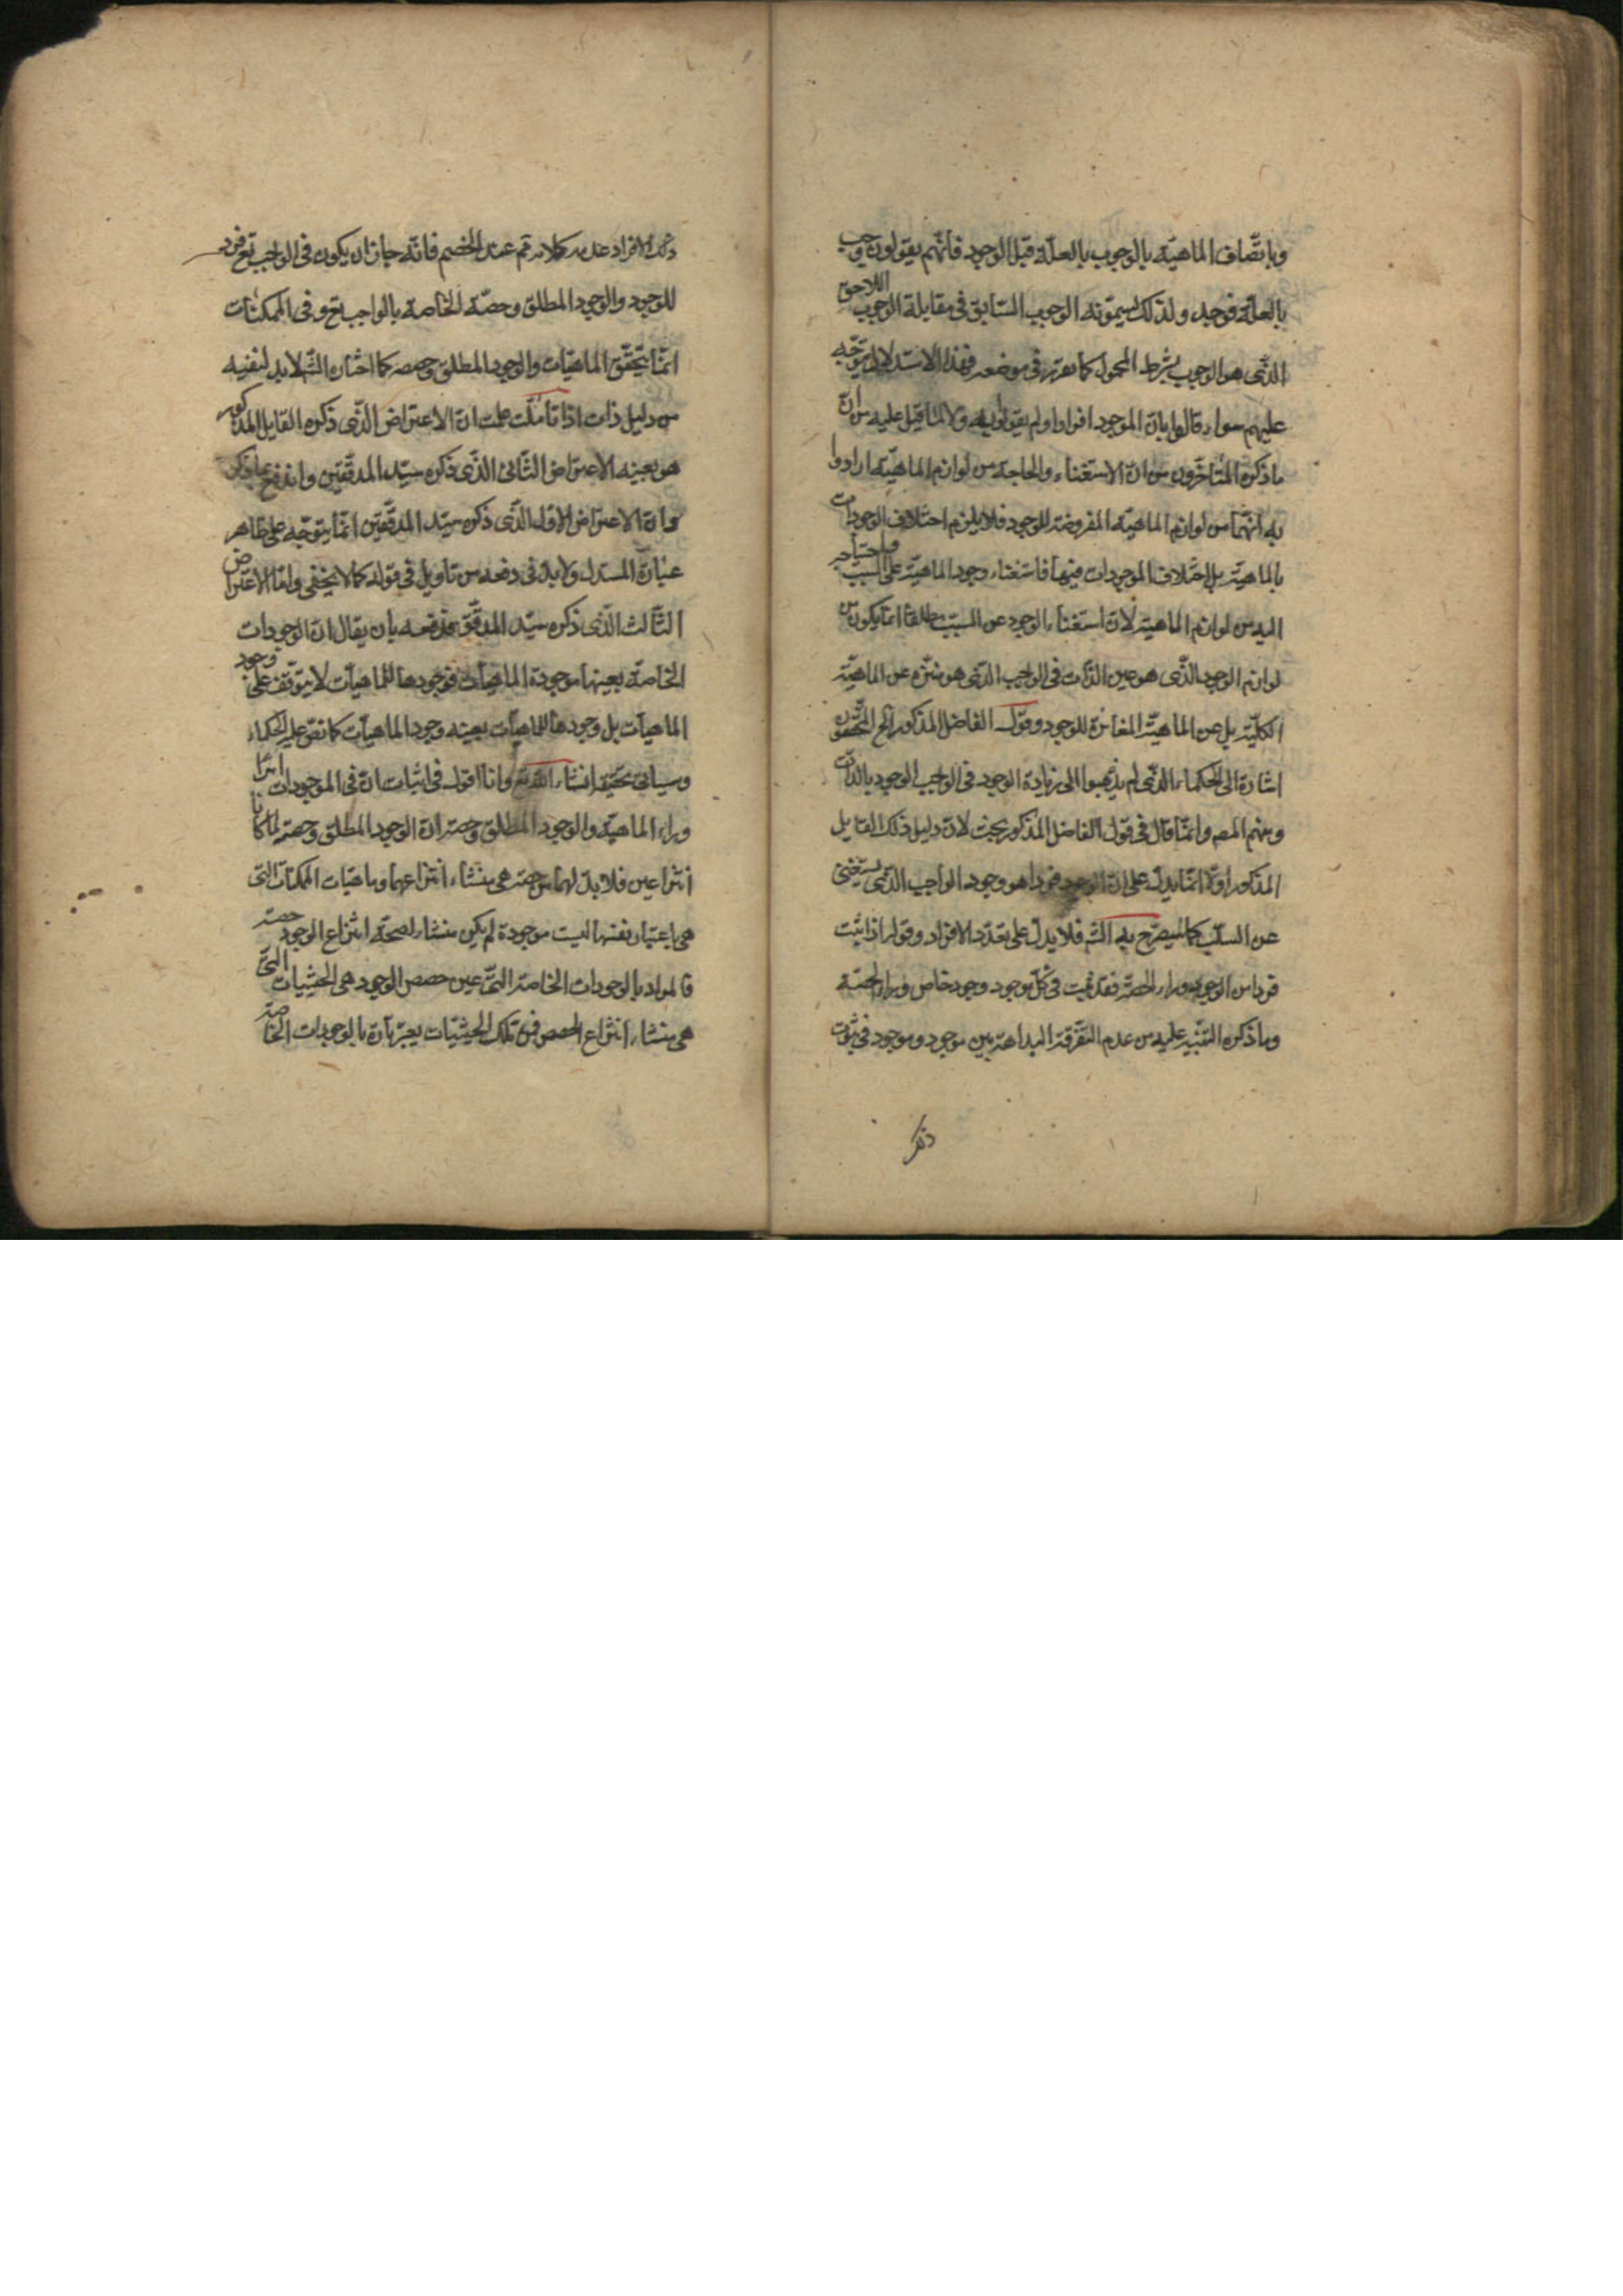 وباتّصاف الماهيّة بالوجوب بالعلّة قبل الوجود فانّهم يقولون وجب
بالعلّة فوجد ولذلك يسمّونه الوجوب السّابق فى مقابلة الوجوب اللاحق
الذّى هو الوجوب بشرط المحمول كما تقرّر فى موضعه فهذا الاستدلال يتوّجه
عليهم سواء قالوا بانّ للوجود افرادا ولم يقولوا به ولا لما قيل عليه من انّ
ما ذكره المتأخّرون من انّ الاستغناء والحاجة من لوازم الماهيّة ارادوا
به انّهما من لوازم الماهيّة المفروضة للوجود فلا يلزم اختلاف الوجودات
بالماهيّة بل اختلاف الموجودات فيها فاستغناء وجود الماهيّة عن السبب واحتياجه
اليه من لوازم الماهيّة لانّ استغناء الوجود عن السبب مطلقا انّما يكون من
لوازم الوجود الذّى هو عين الذّات فى الواجب الذّى هو منزّه عن الماهيّة
الكليّة بل عن الماهيّة المغائرة للوجود وقول الفاضل المذكور الخ المحقّقون
اشارة الى الحكماء الذّى لم يذهبوا الى زيادة الوجود فى الواجب الوجود بالذّات
ومنهم المص وانّما قال فى قول الفاضل المذكور بحث لانّ دليل ذلك القايل
المذكور اوّلا انّما يدلّ على انّ للوجود فردا هو وجود الواجب الذّى يستغنى
عن السبّب كما سيصرّح به الش فلا يدلّ على تعدّد الافراد وقوله اذا ثبت
فردا من الوجود وراء الحصّة فقد ثبت فى كلّ موجود وجود خاص وراء الحصّة
وما ذكره التنّبيه عليه من عدم التفّرقة البداهة بين موجود وموجود فى ثبوت
ذلك
ذلك الافراد عنده كلام تم عند الخصم فانّه جاز ان يكون فى الواجب تع فرد
للوجود والوجود المطلق وحصّة الخاصة بالواجب تع وفى الممكنات
انّما يتحقّق الماهيّات والوجود المطلق وحصصه كما اختاره الش لا بد لنفيه
من دليل ذات اذا تأمّلت علمت انّ الاعتراض الذّى ذكره القايل المذكور
هو بعينه الاعتراض الثّانى الذّى ذكره سيّد المدقّقين واندفع بما ذكر
وانّ الاعتراض الاول الذّى ذكره سيّد المدقّقين انّما يتوجّه على ظاهر
عبارة المستدل ولا بدّ فى دفعه من تأويل فى قوله كما لا يخفى وامّا الاعتراض
الثّالث الذّى ذكره سيّد المدقّق فدفعه بأن يقال انّ الوجودات
الخاصّة بعينها موجودة الماهيّات فوجودها للماهيّات لا يتوّقف على وجود
الماهيّات بل وجودها للماهيّات بعينه وجود الماهيّات كما نصّ عليه الحكماء
وسيأتى تحقيقه انشاء الله تع وانا اقول فى اثبات انّ فى الموجودات امرا
وراء الماهيّة والوجود المطلق وحصّته انّ الوجود المطلق وحصّته لما كانا
انتزاعين فلا بدّ لهما من حصّة هى منشاء انتزاعهما وماهيّات الممكنات التّى
هى باعتبار نفسها ليست موجودة لم يكن منشاء لصحة انتزاع الوجود حصّته
فالمراد بالوجودات الخاصّة التّى عين حصص الوجود هى الحيثيّات التّى
هى منشاء انتزاع الحصص فمن تلك الحيثيّات يعبّر تارة بالوجودات الخاصّة